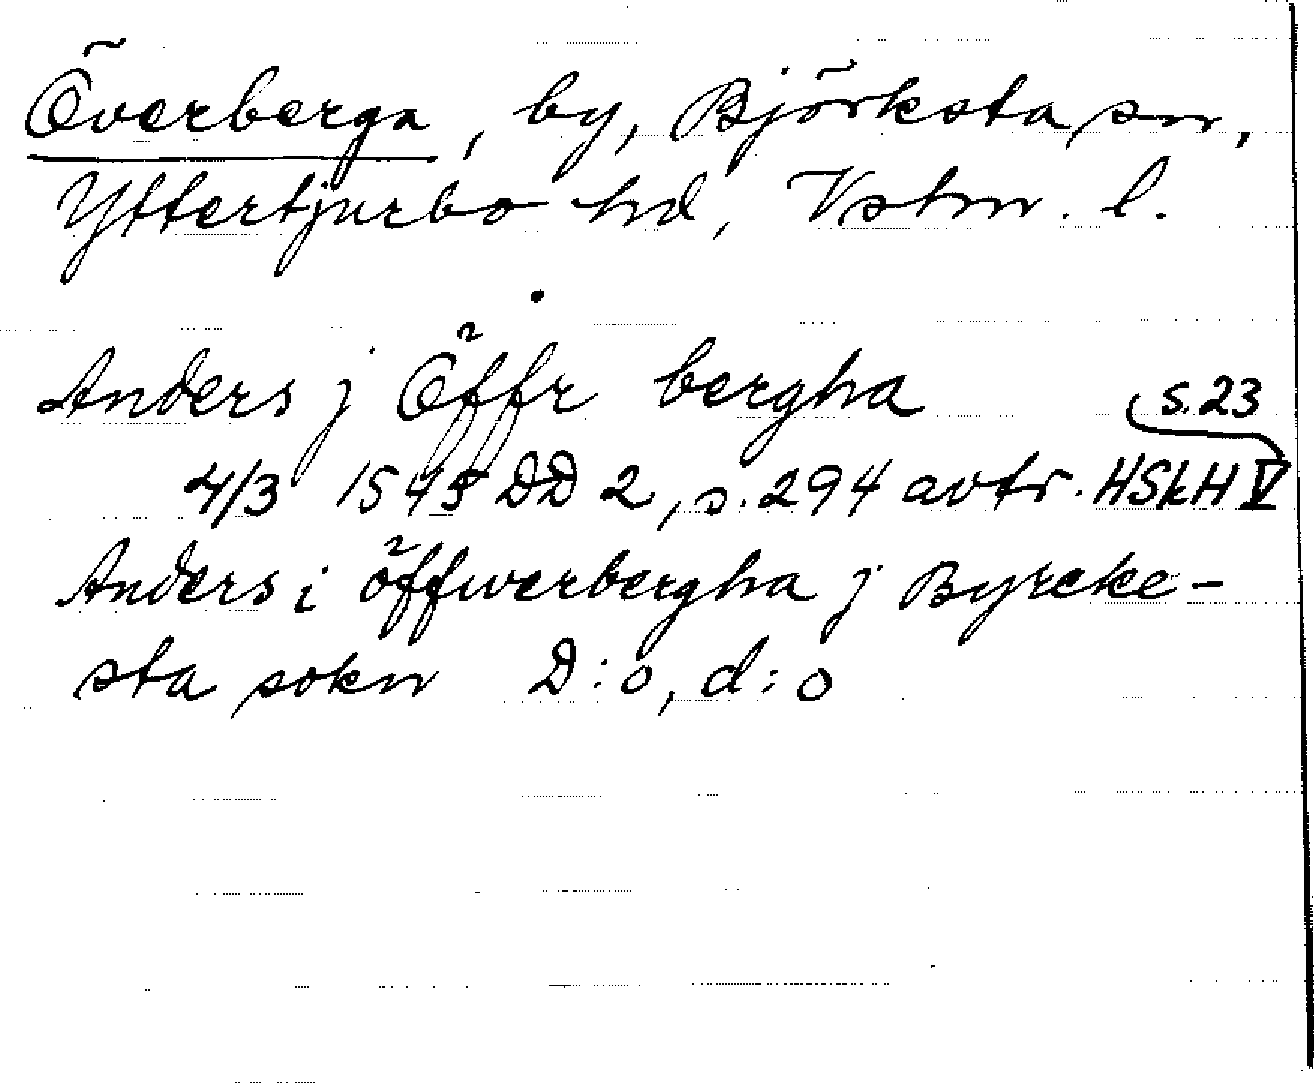 Överberga, by, Björksta sn,
Yttertjurbo hd, Vstm. l.
Anders j Öffr bergha
4/3 1545 DD 2, s. 294 avtr. HSkH V s. 23
Anders i öffwerbergha j Byrcke-
sta sokn D:o, d:o